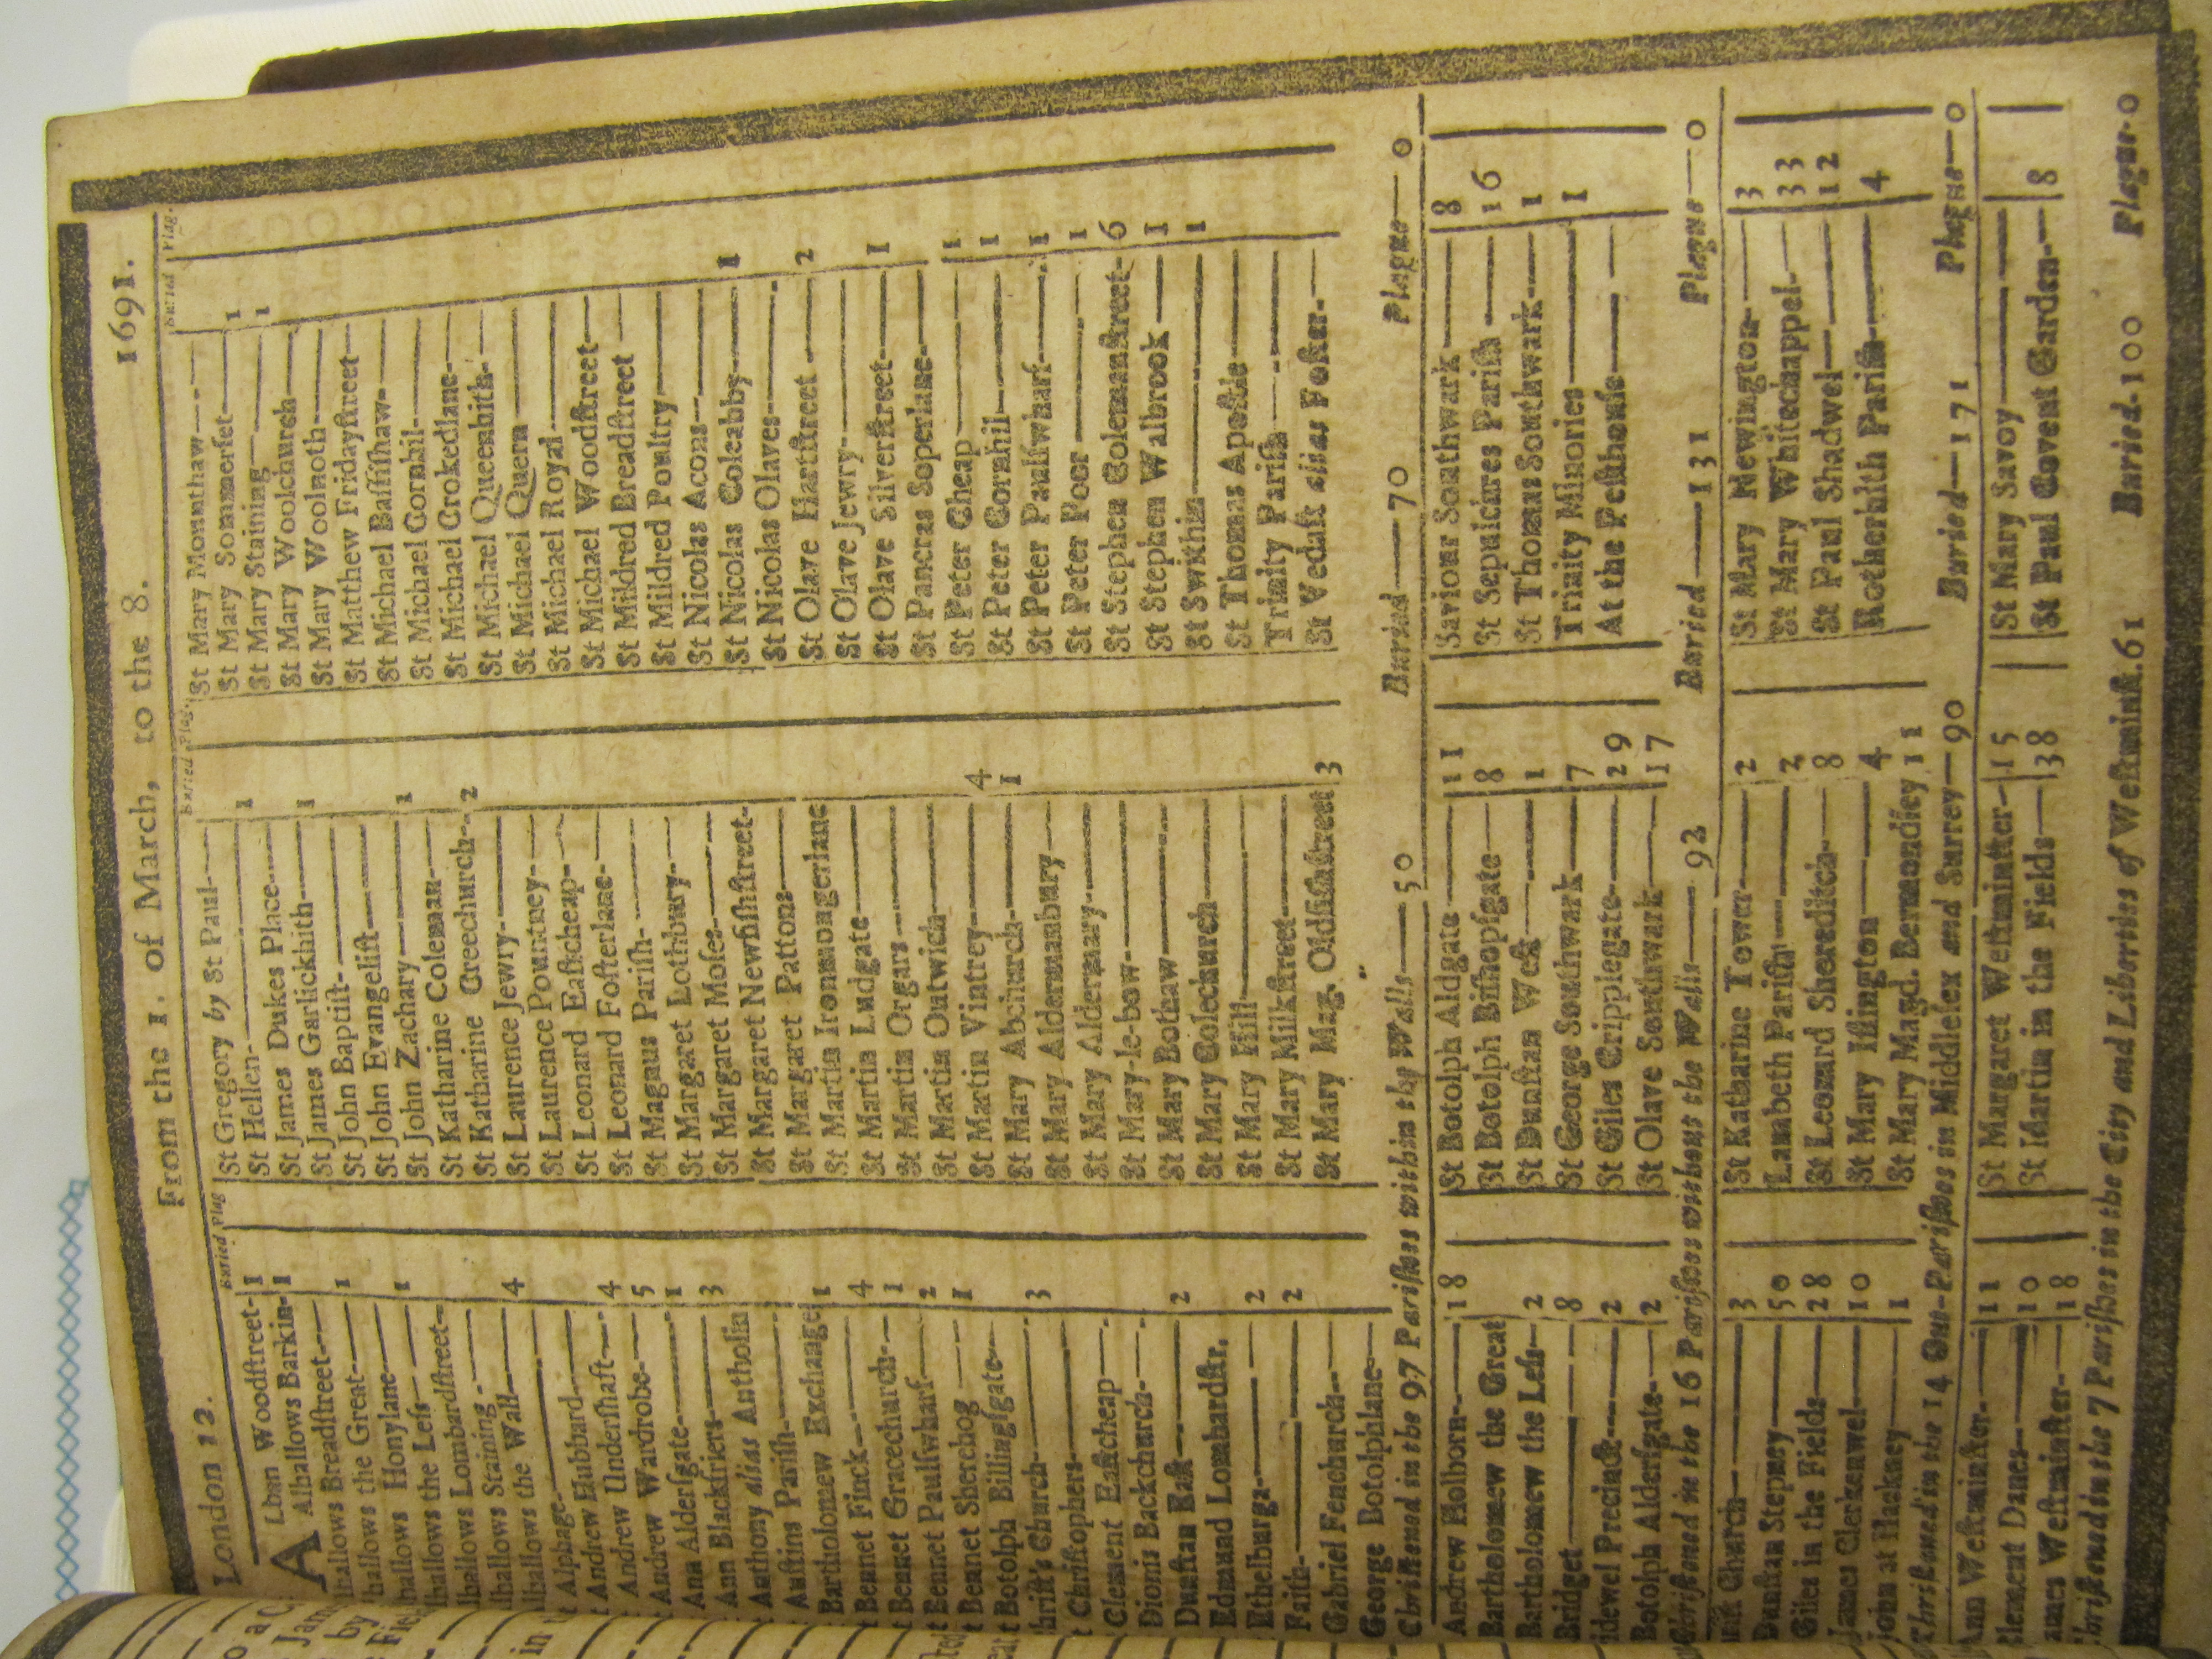 London 12.
From the 1. of March, to the 8.
1691.
Buried Plag
ALban Woodſtreet- 1
Alhallows Barkin- 1
lhallows Breadſtreet—
lhallows the Great— 1
hallows Honylane—
lhallows the Leſs— 1
lhallows Lombardſtreet-
lhallows Staining—
lhallows the Wall— 4
t Alphage—
t Andrew Hubbard—
Andrew Underſhaft— 4
Andrew Wardrobe— 5
Ann Alderſgate— 1
Ann Blackfriers— 3
t Anthony alias Antholin
Auſtins Pariſh—
Bartholomew Exchange 1
t Bennet Finck— 4
t Bennet Gracechurch— 1
t Bennet Paulſwharf— 2
t Bennet Sherehog— 1
t Botolph Billingſgate—
hriſt's Church— 3
t Chriſtophers—
Clement Eaſtcheap—
Dionis Backchurch—
Dunſtan Eaſt— 2
Edmund Lombardſtr.
Ethelburga— 2
Faith— 2
Gabriel Fenchurch—
George Botolphlane—
Buried Plag.
St Gregory by St Paul—
St Hellen— 1
St James Dukes Place—
St James Garlickhith— 1
St John Baptiſt—
St John Evangeliſt—
St John Zachary— 1
St Katharine Coleman—
St Katharine Creechurch— 2
St Laurence Jewry—
St Laurence Pountney—
St Leonard Eaſtcheap—
St Leonard Foſterlane—
St Magnus Pariſh—
St Margaret Lothbury—
St Margaret Moſes—
St Margaret Newfiſhſtreet-
St Margaret Pattons—
St Martin Ironmongerlane
St Martin Ludgate—
St Martin Orgars—
St Martin Outwich—
St Martin Vintrey— 4
St Mary Abchurch— 1
St Mary Aldermanbury—
St Mary Aldermary—
St Mary-le-bow—
St Mary Bothaw—
St Mary Colechurch—
St Mary Hill—
St Mary Milkſtreet—
St Mary Mag. Oldfiſhſtreet 3
Buried Plag.
St Mary Mounthaw—
St Mary Sommerſet— 1
St Mary Staining— 1
St Mary Woolchurch—
St Mary Woolnoth—
St Matthew Fridayſtreet—
St Michael Baſſiſhaw—
St Michael Cornhil—
St Michael Crokedlane—
St Michael Queenhith—
St Michael Quern—
St Michael Royal—
St Michael Woodſtreet—
St Mildred Breadſtreet—
St Mildred Poultry—
St Nicolas Acons—
St Nicolas Coleabby— 1
St Nicolas Olaves—
St Olave Hartſtreet— 2
St Olave Jewry—
St Olave Silverſtreet— 1
St Pancras Soperlane—
St Peter Cheap— 1
St Peter Cornhil— 1
St Peter Paulſwharf— 1
St Peter Poor— 1
St Stephen Colemanſtreet- 6
St Stephen Walbrook— 1
St Swithin— 1
St Thomas Apoſtle—
Trinity Pariſh—
St Vedaſt alias Foſter—
Chriſtened in the 97 Pariſhes within the Walls—50 Buried—70 Plague—0
Andrew Holborn— 18
Bartholomew the Great
Bartholomew the Leſs— 2
Bridget— 8
idewel Precinct— 2
Botolph Alderſgate— 2
St Botolph Aldgate— 11
St Botolph Biſhopſgate— 8
St Dunſtan Weſt— 1
St George Southwark— 7
St Giles Cripplegate— 29
St Olave Southwark— 17
Saviour Southwark— 8
St Sepulchres Pariſh— 16
St Thomas Southwark— 1
Trinity Minories— 1
At the Peſthouſe—
Chriſtened in the 16 Pariſhes without the Walls—92 Buried—131 Plague—0
riſt Church— 3
Dunſtan Stepney— 50
Giles in the Fields— 28
James Clerkenwel— 10
John at Hackney— 1
St Katharine Tower— 2
Lambeth Pariſh— 2
St Leonard Shoreditch— 8
St Mary Iſlington— 4
St Mary Magd. Bermondſey 11
St Mary Newington— 3
St Mary Whitechappel— 33
St Paul Shadwel— 12
Rotherhith Pariſh— 4
Chriſtened in the 14 Out-Pariſhes in Middleſex and Surrey—90 Buried—171 Plague—0
Ann Weſtminſter— 11
Clement Danes— 10
ames Weſtminſter— 18
St Margaret Weſtminſter— 15
St Martin in the Fields— 38
St Mary Savoy—
St Paul Covent Garden— 8
Chriſtened in the 7 Pariſhes in the City and Liberties of Weſtminſt. 61 Buried-100 Plague-0